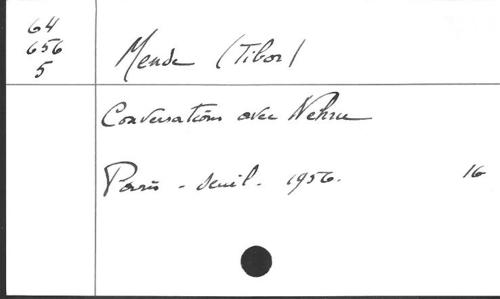 64
656
5
Mende (Tibor)
Conversations avec Nehru
Paris - Seuil. 1956. 16